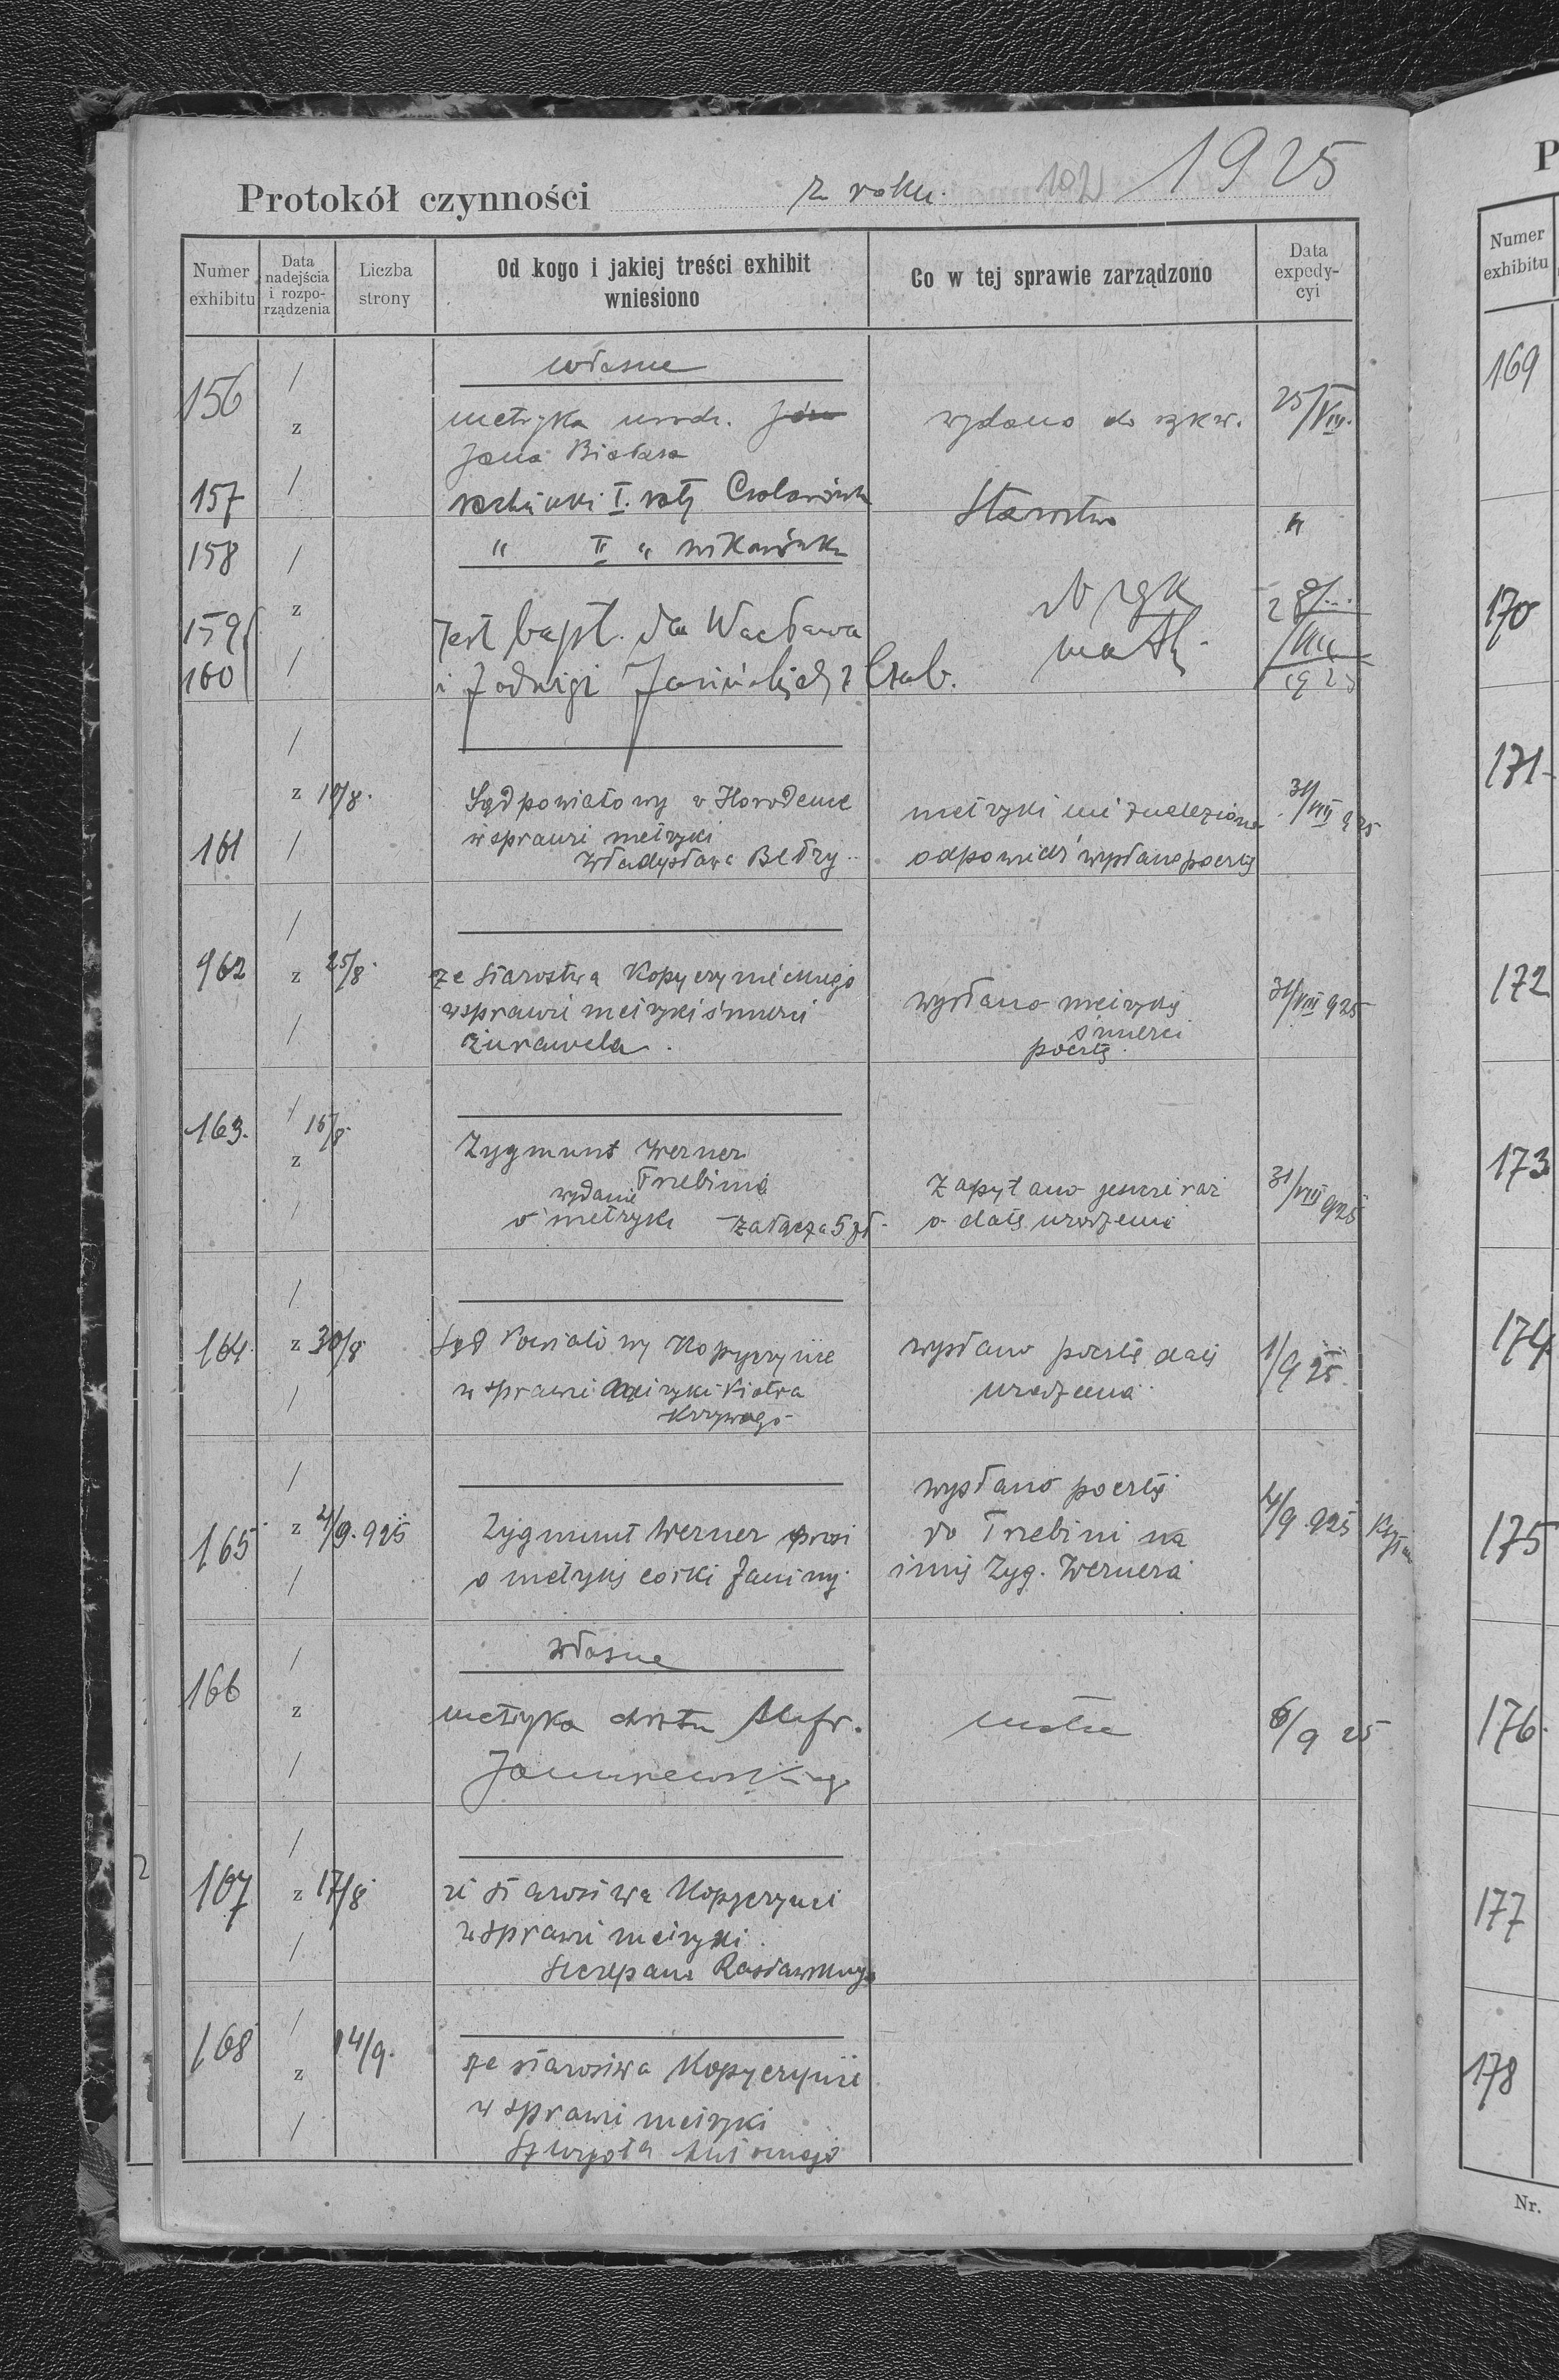 Protokół czynności z roku 1925
Numer exhibitu
Data nadejścia i rozporządzenia
Liczba strony
Od kogo i jakiej treści exhibit wniesiono
Co w tej sprawie zarządzono
Data expedycyi
własne
156 z metryka urodz. wydano do 25/VIII.
Jana Białasa
157 rachunki I. raty Starostwo "
158 " II "
159 z test bapt. dla Wacława do rąk 28/
160 i Jadwigi matki VIII 1925
z 10/8. Sąd powiatowy w Horodence metryki nie znaleziono 31/VIII 925
161 w sprawie metryki
Władysława odpowiedź wysłano pocztą
162 z 25/8 ze Starostwa Kopyczynieckiego
w sprawie metryki śmierci wysłano metrykę 31/VIII 925
Żurawela. śmierci
pocztą.
163. 15/8.
z Zygmunt Werner
Trzebinia Zapytano jeszcze raz 31/VIII 925
wydanie
o metrykę załącza 5 zł. o datę urodzenia
164 z 30/8 Sąd Powiatowy Kopyczyńce wysłano pocztą datę 1/9 25.
w sprawie metryki Piotra urodzenia
Krzywego
wysłano pocztą
165 z 4/9. 925 Zygmunt Werner prosi do Trzebini na 4/9 925
o metrykę córki Janiny imię Zyg. Wernera
własne
166
z metryka chrztu 6/9 25
167 z 17/8 ze Starostwa Kopyczyńce
w sprawie metryki
Szczepana Rasławskiego
168 14/9.
z ze starostwa Kopyczyńce
w sprawie metryki
P
Numer exhibitu
169
170
171
172
173
174
175
176
177
178
Nr.